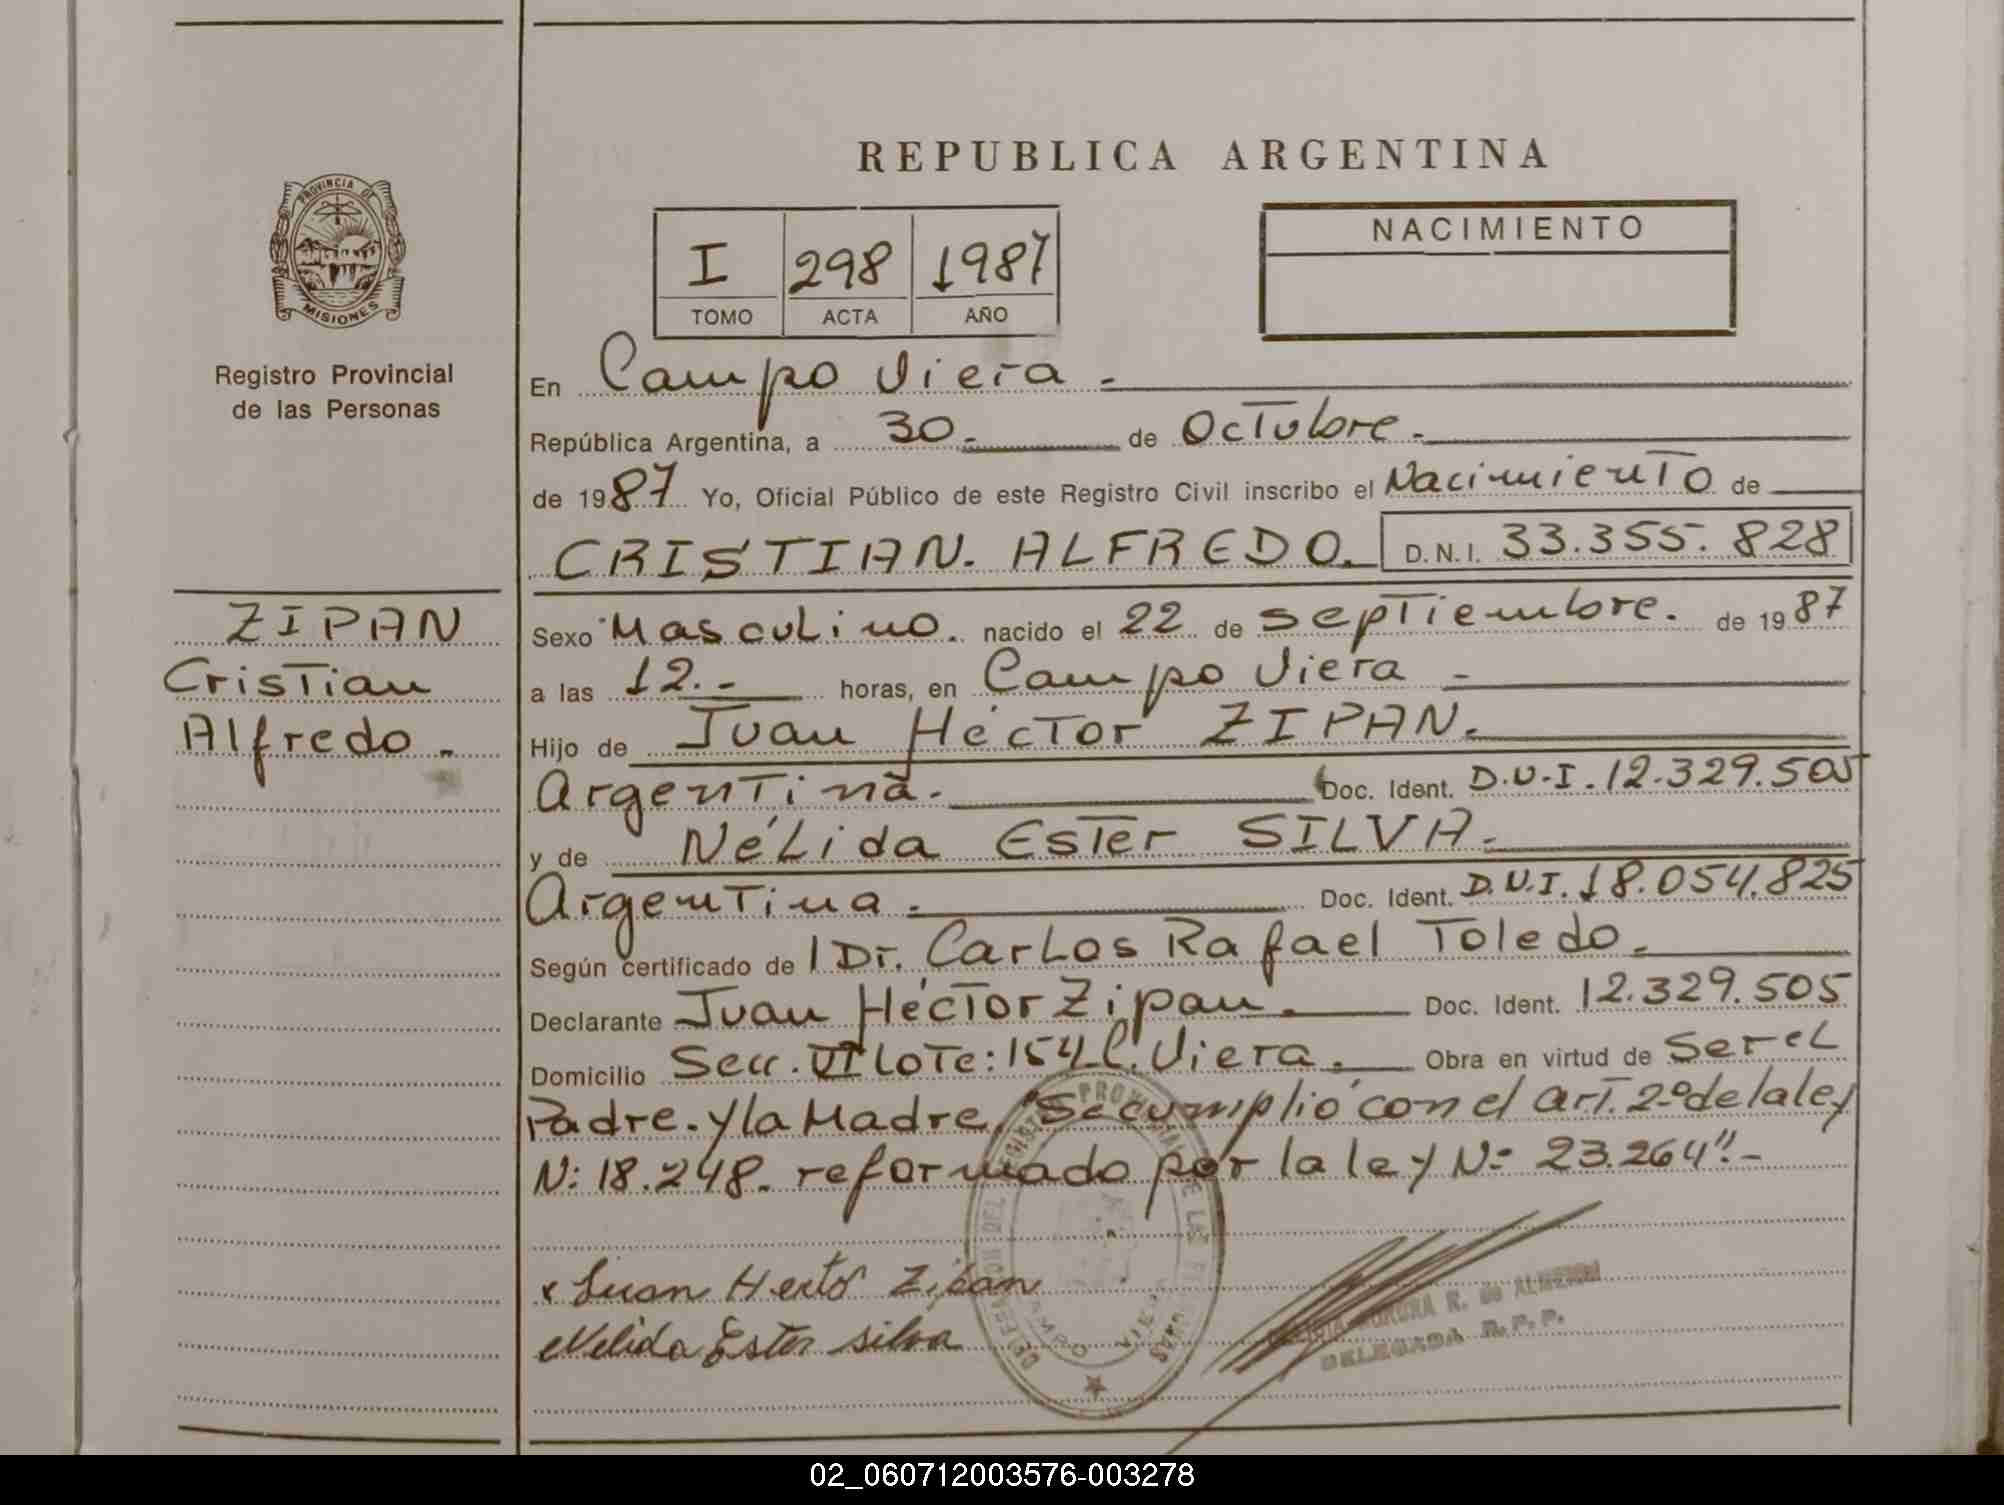 REPUBLICA ARGENTINA
PROVINCIA DE
MISIONES
Registro Provincial
de las Personas
I 298 1987
TOMO ACTA AÑO
NACIMIENTO
En Campo Viera.
República Argentina, a 30. de Octubre.
de 1987 Yo, Oficial Público de este Registro Civil inscribo el Nacimiento de
CRISTIAN. ALFREDO. D.N.I. 33.355.828
ZIPAN
Cristian
Alfredo.
Sexo Masculino. nacido el 22 de septiembre. de 1987
a las 12.- horas, en Campo Viera
Hijo de Juan Héctor ZIPAN.
Argentina. Doc. Ident. D.N.I. 12.329.505
y de NéLida Ester SILVA.
Argentina. Doc. Ident. D.N.I. 18.054.825
Según certificado de l Dr. CarLos Rafael Toledo.
Declarante Juan Héctor Zipan. Doc. Ident. 12.329.505
Domicilio Secc. VI Lote: 154 C. Viera. Obra en virtud de ser eL
Padre. y la Madre. "Se cumplió con el art. 2º de la ley
N: 18.248. reformado por la ley Nº 23.264".-
x Juan Hector Zipan
Nelida Ester silva
DELEGACION DEL REGISTRO PROVINCIAL DE LAS PERSONAS
CAMPO VIERA
AURORA R. de ALMEIDA
DELEGADA R.P.P.
02_060712003576-003278